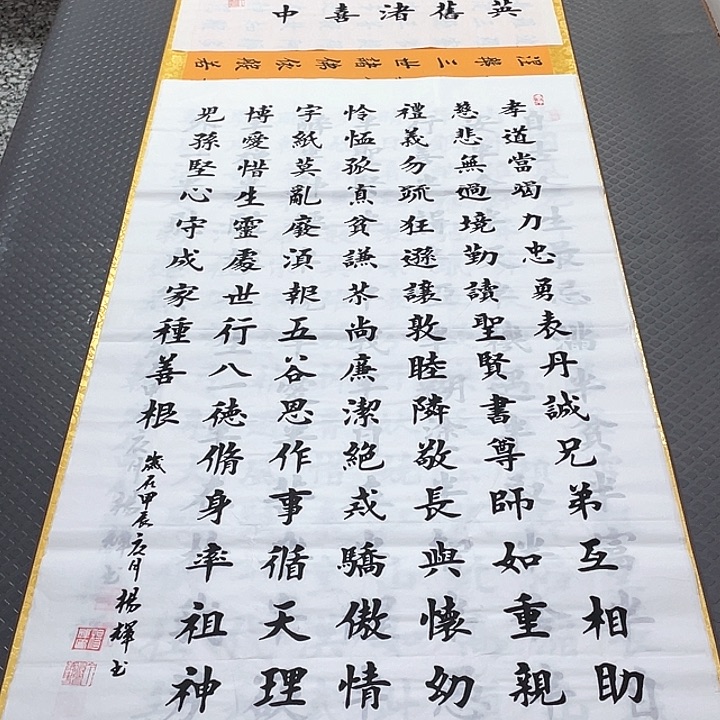 英
舊
渚
喜
中
涅槃三世諸佛依般若
孝道當竭力忠勇表丹誠兄弟互相助
慈悲無過境勤讀聖賢書尊師如重親
禮義勿疏狂遜讓敦睦隣敬長與懷幼
怜恤孤寡貧謙恭尚廉潔絕戎驕傲情
字紙莫亂廢須報五谷恩作事循天理
博愛惜生靈處世行八徳脩身率祖神
兒孫堅心守成家種善根
歲在甲辰月楊輝书